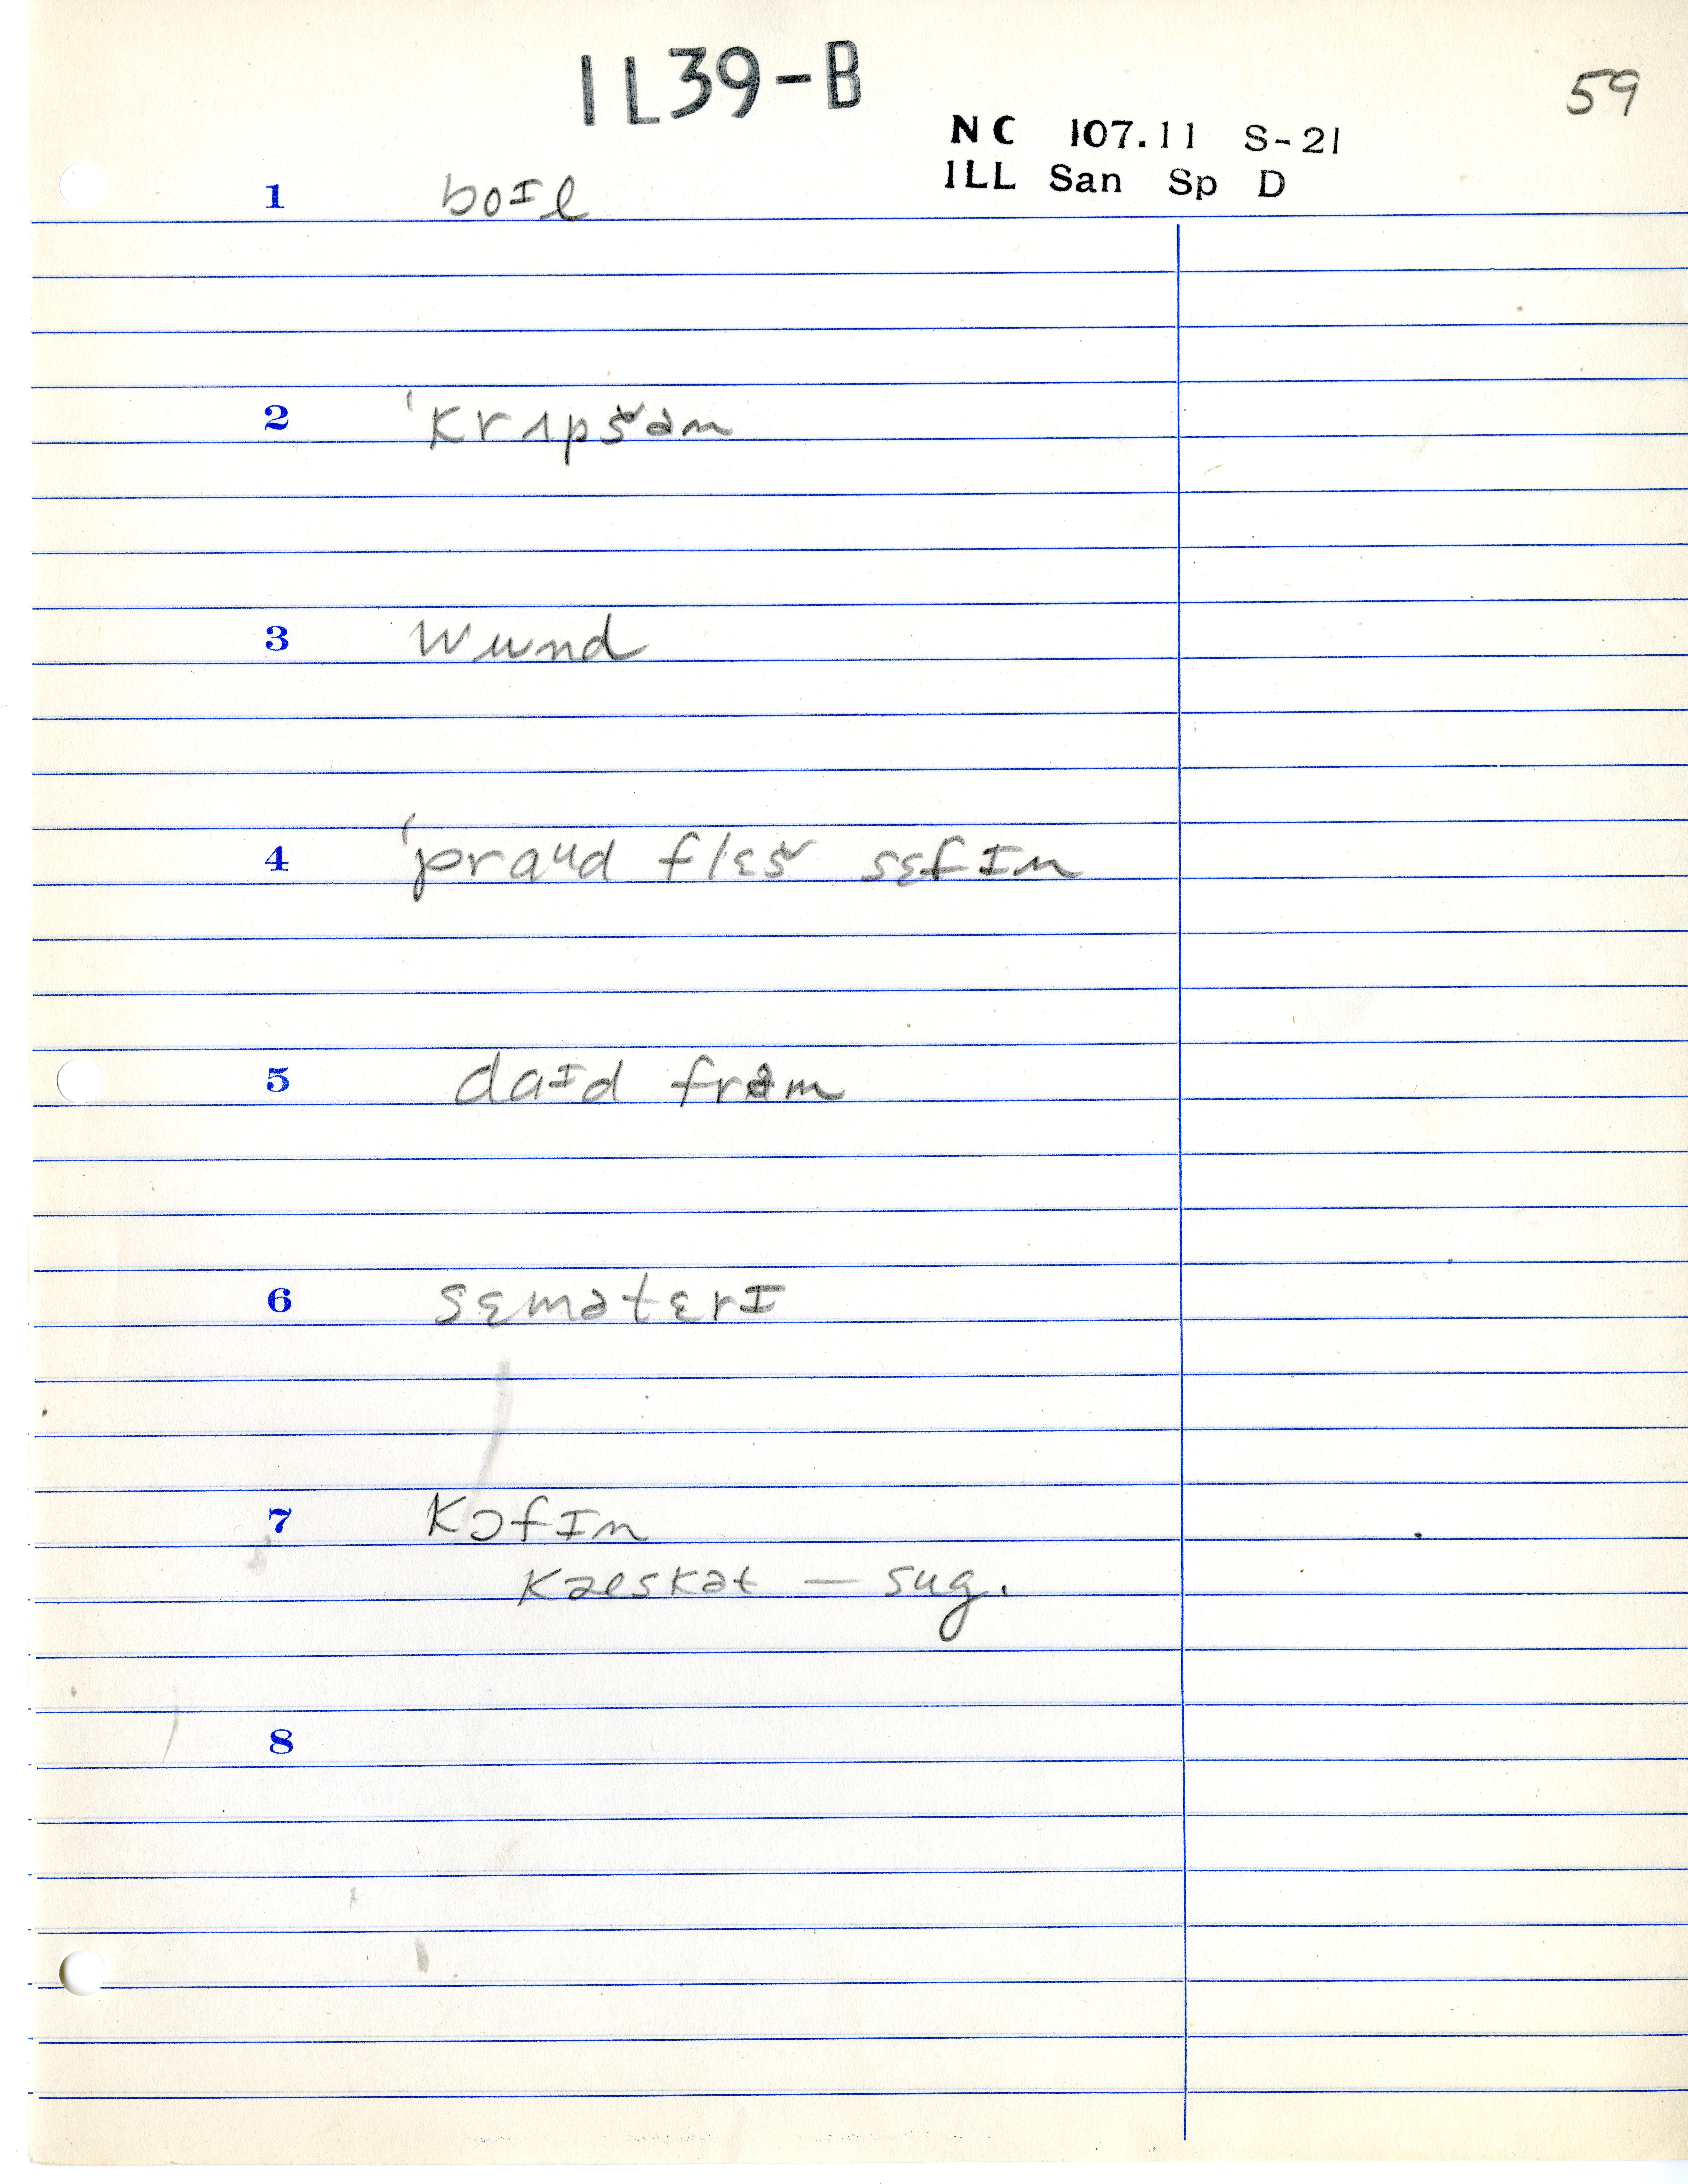 IL39-B
59
NC 107.11 S-21
ILL San Sp D
1 boɪl
2 ˈkrʌpšən
3 wund
4 ˈpraud flɛš sɛfɪn
5 daɪd frəm
6 sɛmətɛrɪ
7 kɔfɪn
kæskət — sug.
8